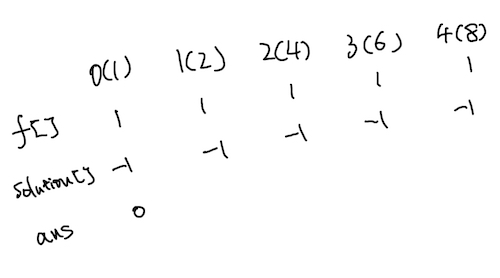 0(1) 1(2) 2(4) 3(6) 4(8)
f[] 1 1 1 1 1
solution[] -1 -1 -1 -1 -1
ans 0